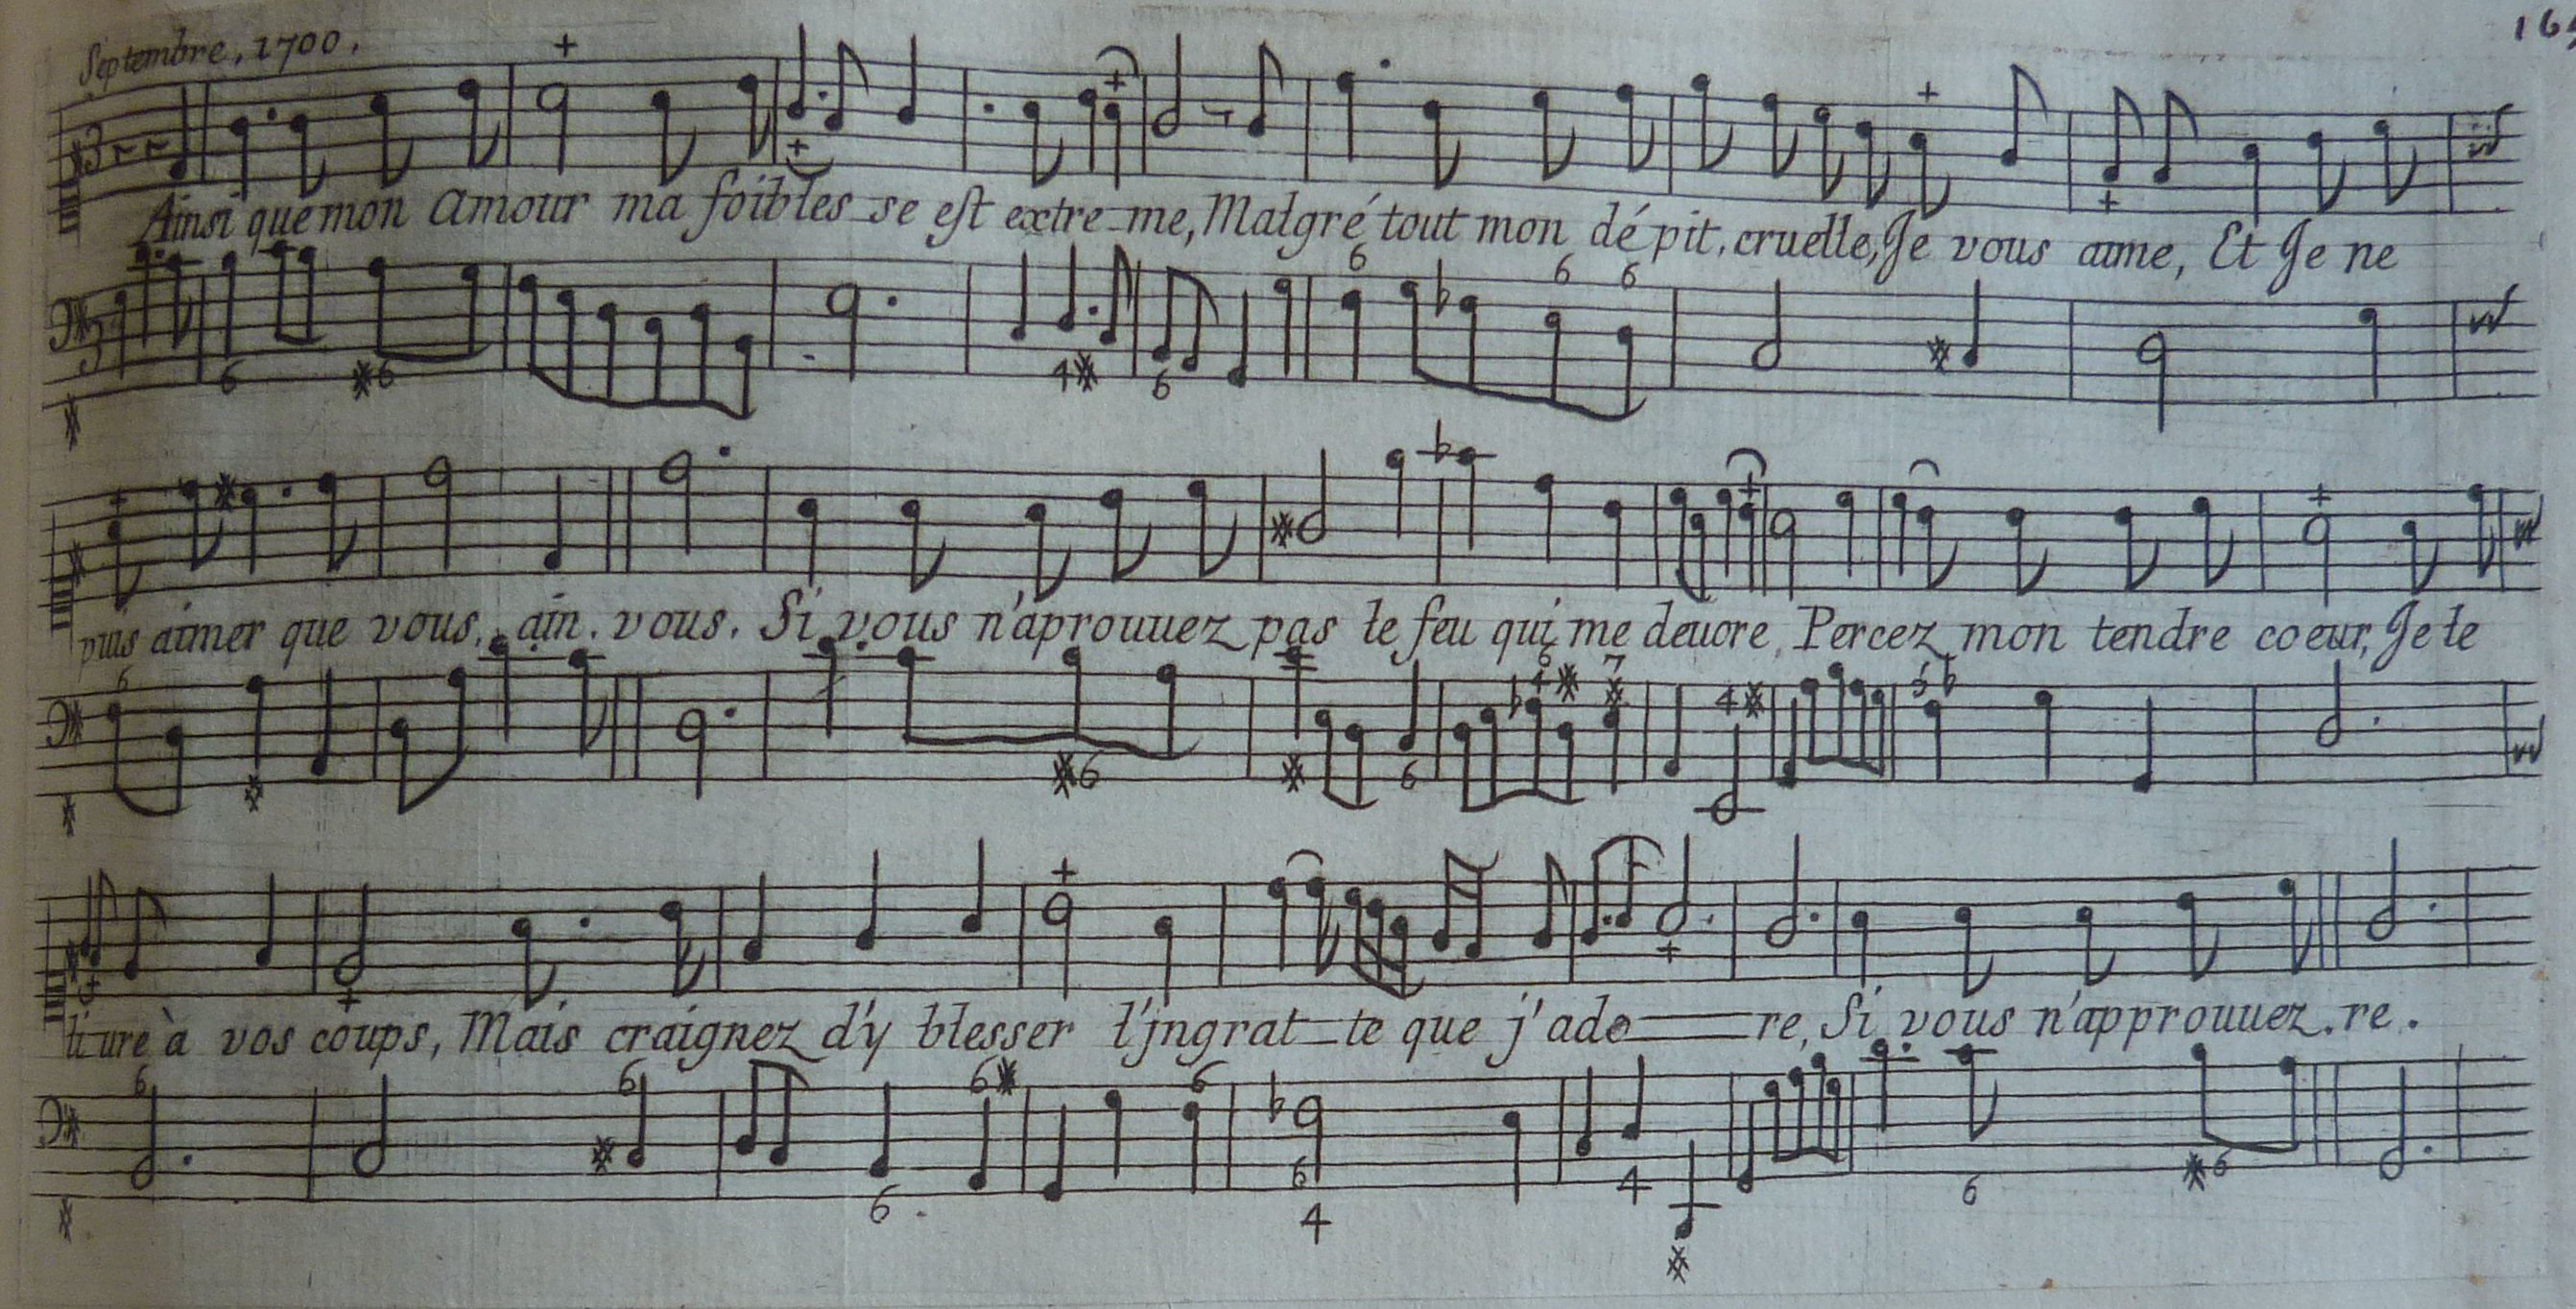 Septembre, 1700.
Ainsi que mon amour ma foibles-se est extre-me, Malgré tout mon dépit, cruelle, Je vous aime, Et Je ne
puis aimer que vous, ain. vous. Si vous n'aprouuez pas le feu qui me deuore, Percez mon tendre coeur, Je le
li-ure à vos coups, Mais craignez d'y blesser l'jngrat-te que j'ado-re, Si vous n'approuuez. re.